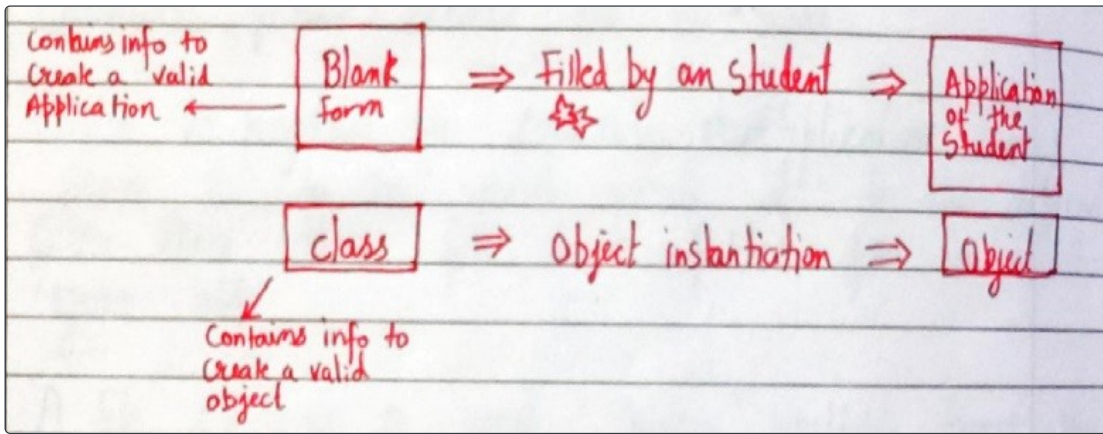 Contains info to
Create a valid
Application ←
Blank
form
⇒ Filled by an Student ⇒
Application
of the
Student
class ⇒ Object instantiation ⇒ Object
Contains info to
Create a valid
object